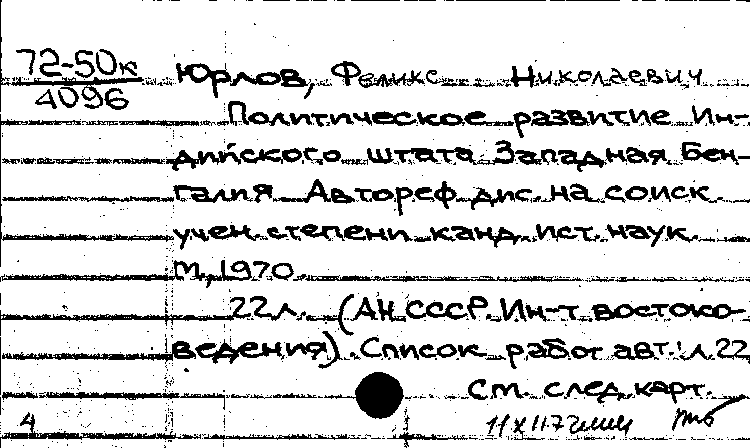 72-50к
4096
Юрлов, Феликс Николаевич
Политическое развитие Ин-
дийского штата Западная Бен-
галия Автореф дис. на соиск.
учен. степени канд. ист. наук.
М., 1970.
22 л. (АН СССР. Ин-т востоко-
ведения). Список работ авт.: л 22
См. след. карт.
4